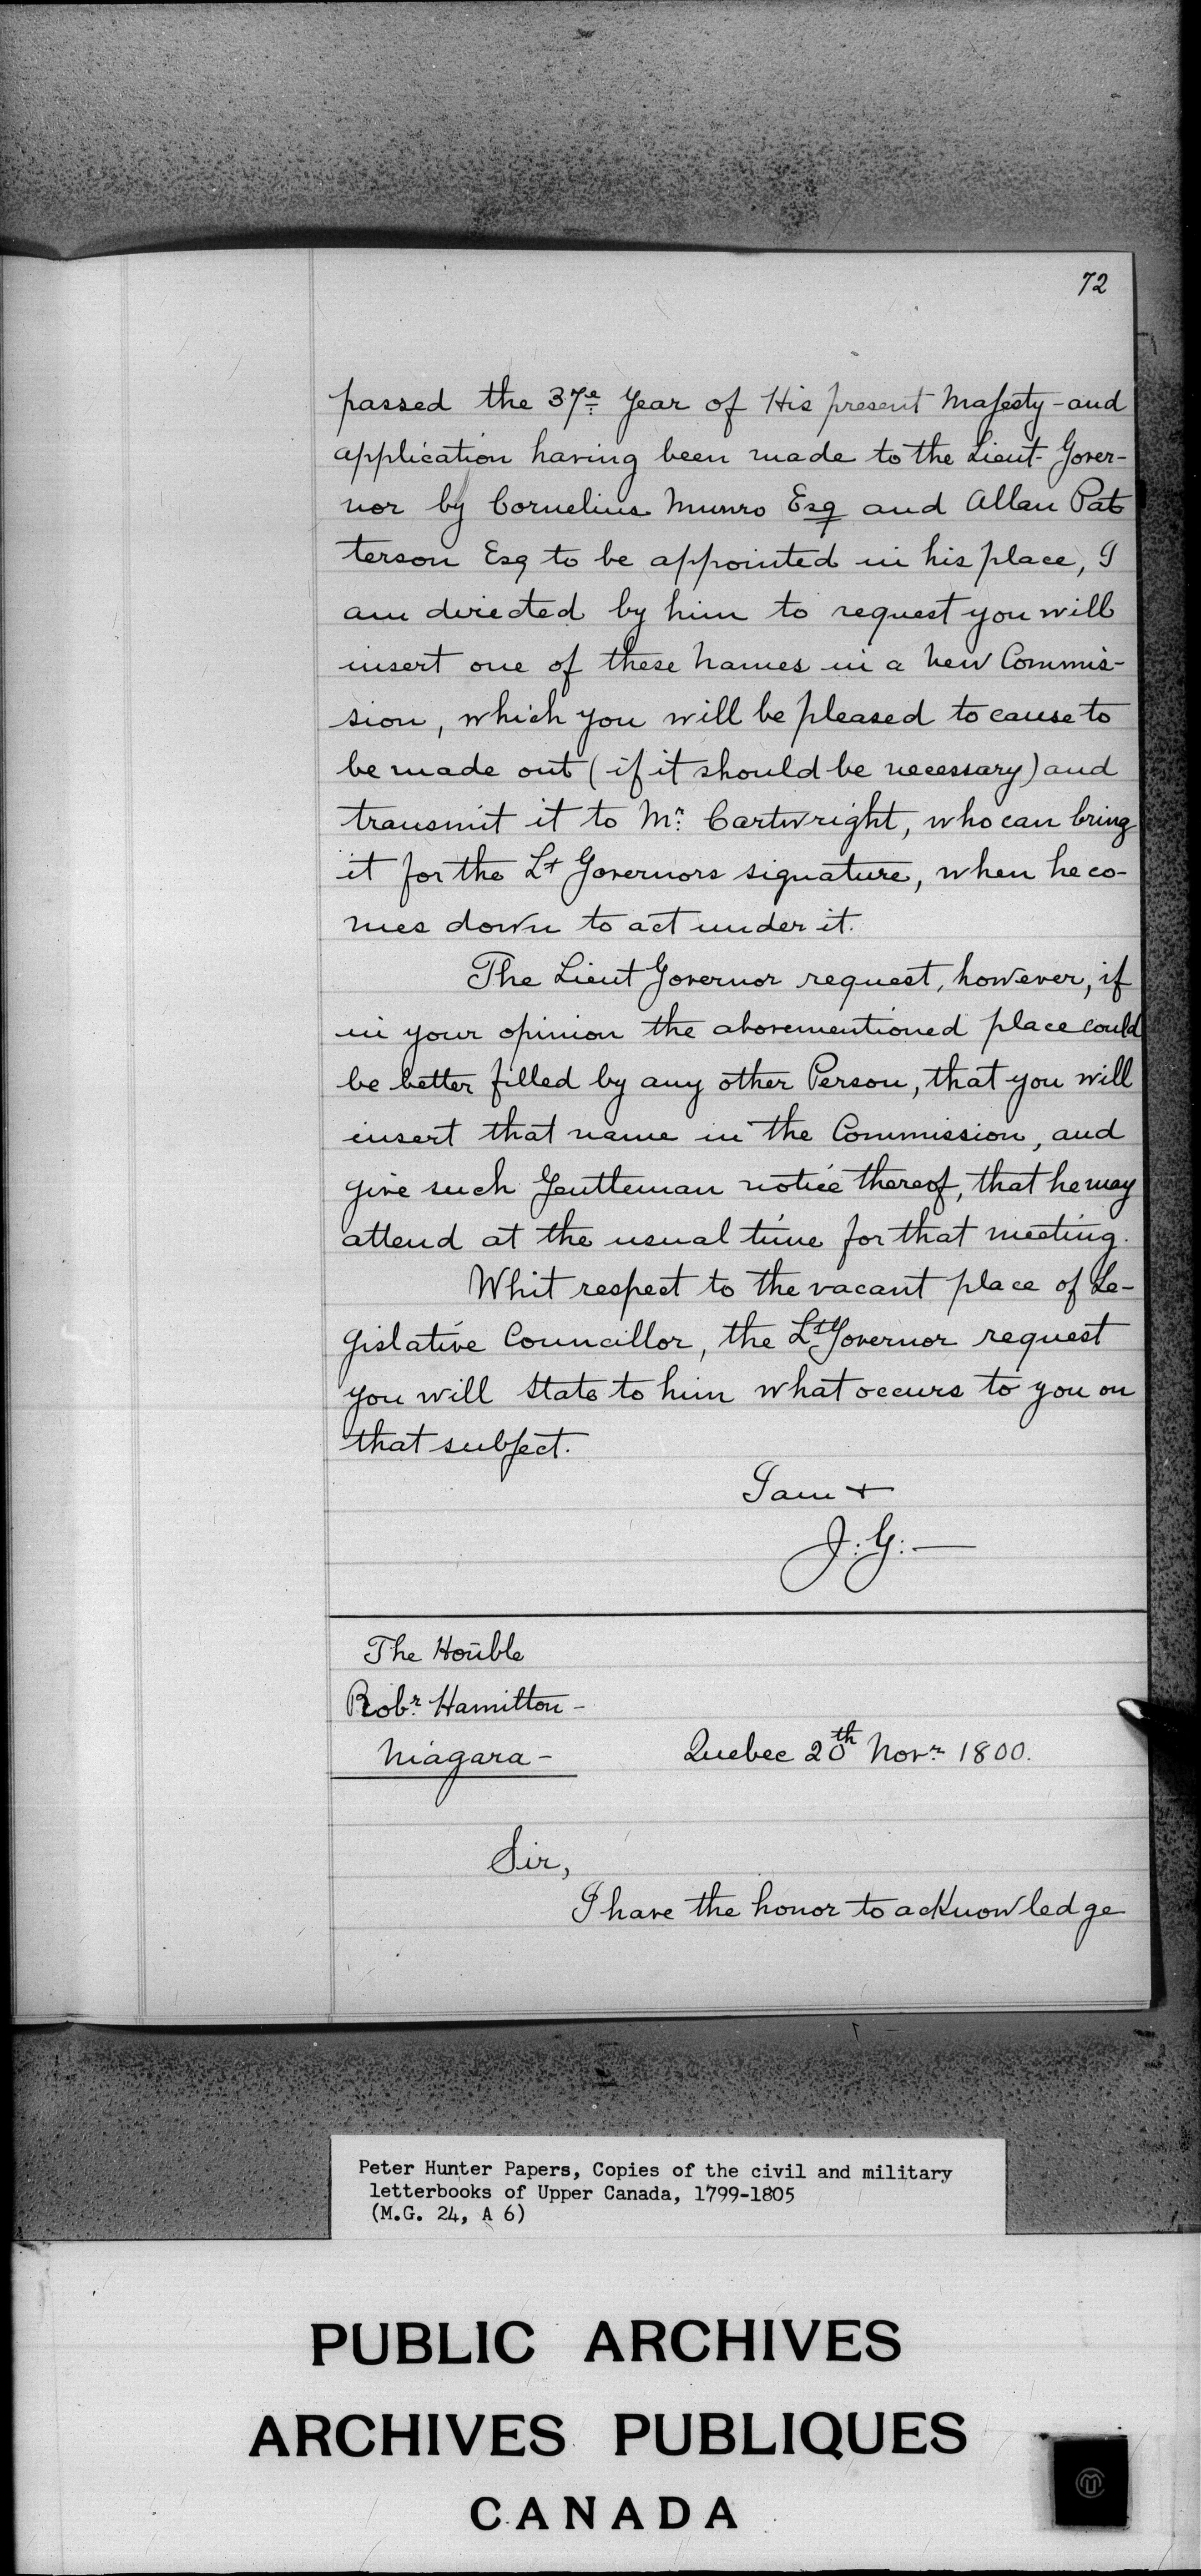 72
passed the 37e Year of His present Majesty - and
application having been made to the Lieut- Gover-
nor by Cornelius Munro Esq and Allan Pat
terson Esq to be appointed in his place, I
am directed by him to request you will
insert one of these names in a new Commis-
sion, which you will be pleased to cause to
be made out (if it should be necessary) and
transmit it to Mr. Cartwright, who can bring
it for the Lt Governors signature, when he co-
mes down to act under it.
The Lieut Governor request, however, if
in your opinion the abovementioned place could
be better filled by any other Person, that you will
insert that name in the Commission, and
give such Gentleman notice thereof, that he may
attend at the usual time for that meeting.
Whit respect to the vacant place of Le-
gislative Councillor, the Lt Governor request
you will state to him what occurs to you on
that subject.
I am +
J: G: —
The Honble
Robr Hamilton -
Niagara -
Quebec 20th Novr 1800.
Sir,
I have the honor to acknowledge
Peter Hunter Papers, Copies of the civil and military
letterbooks of Upper Canada, 1799-1805
(M.G. 24, A 6)
PUBLIC ARCHIVES
ARCHIVES PUBLIQUES
CANADA